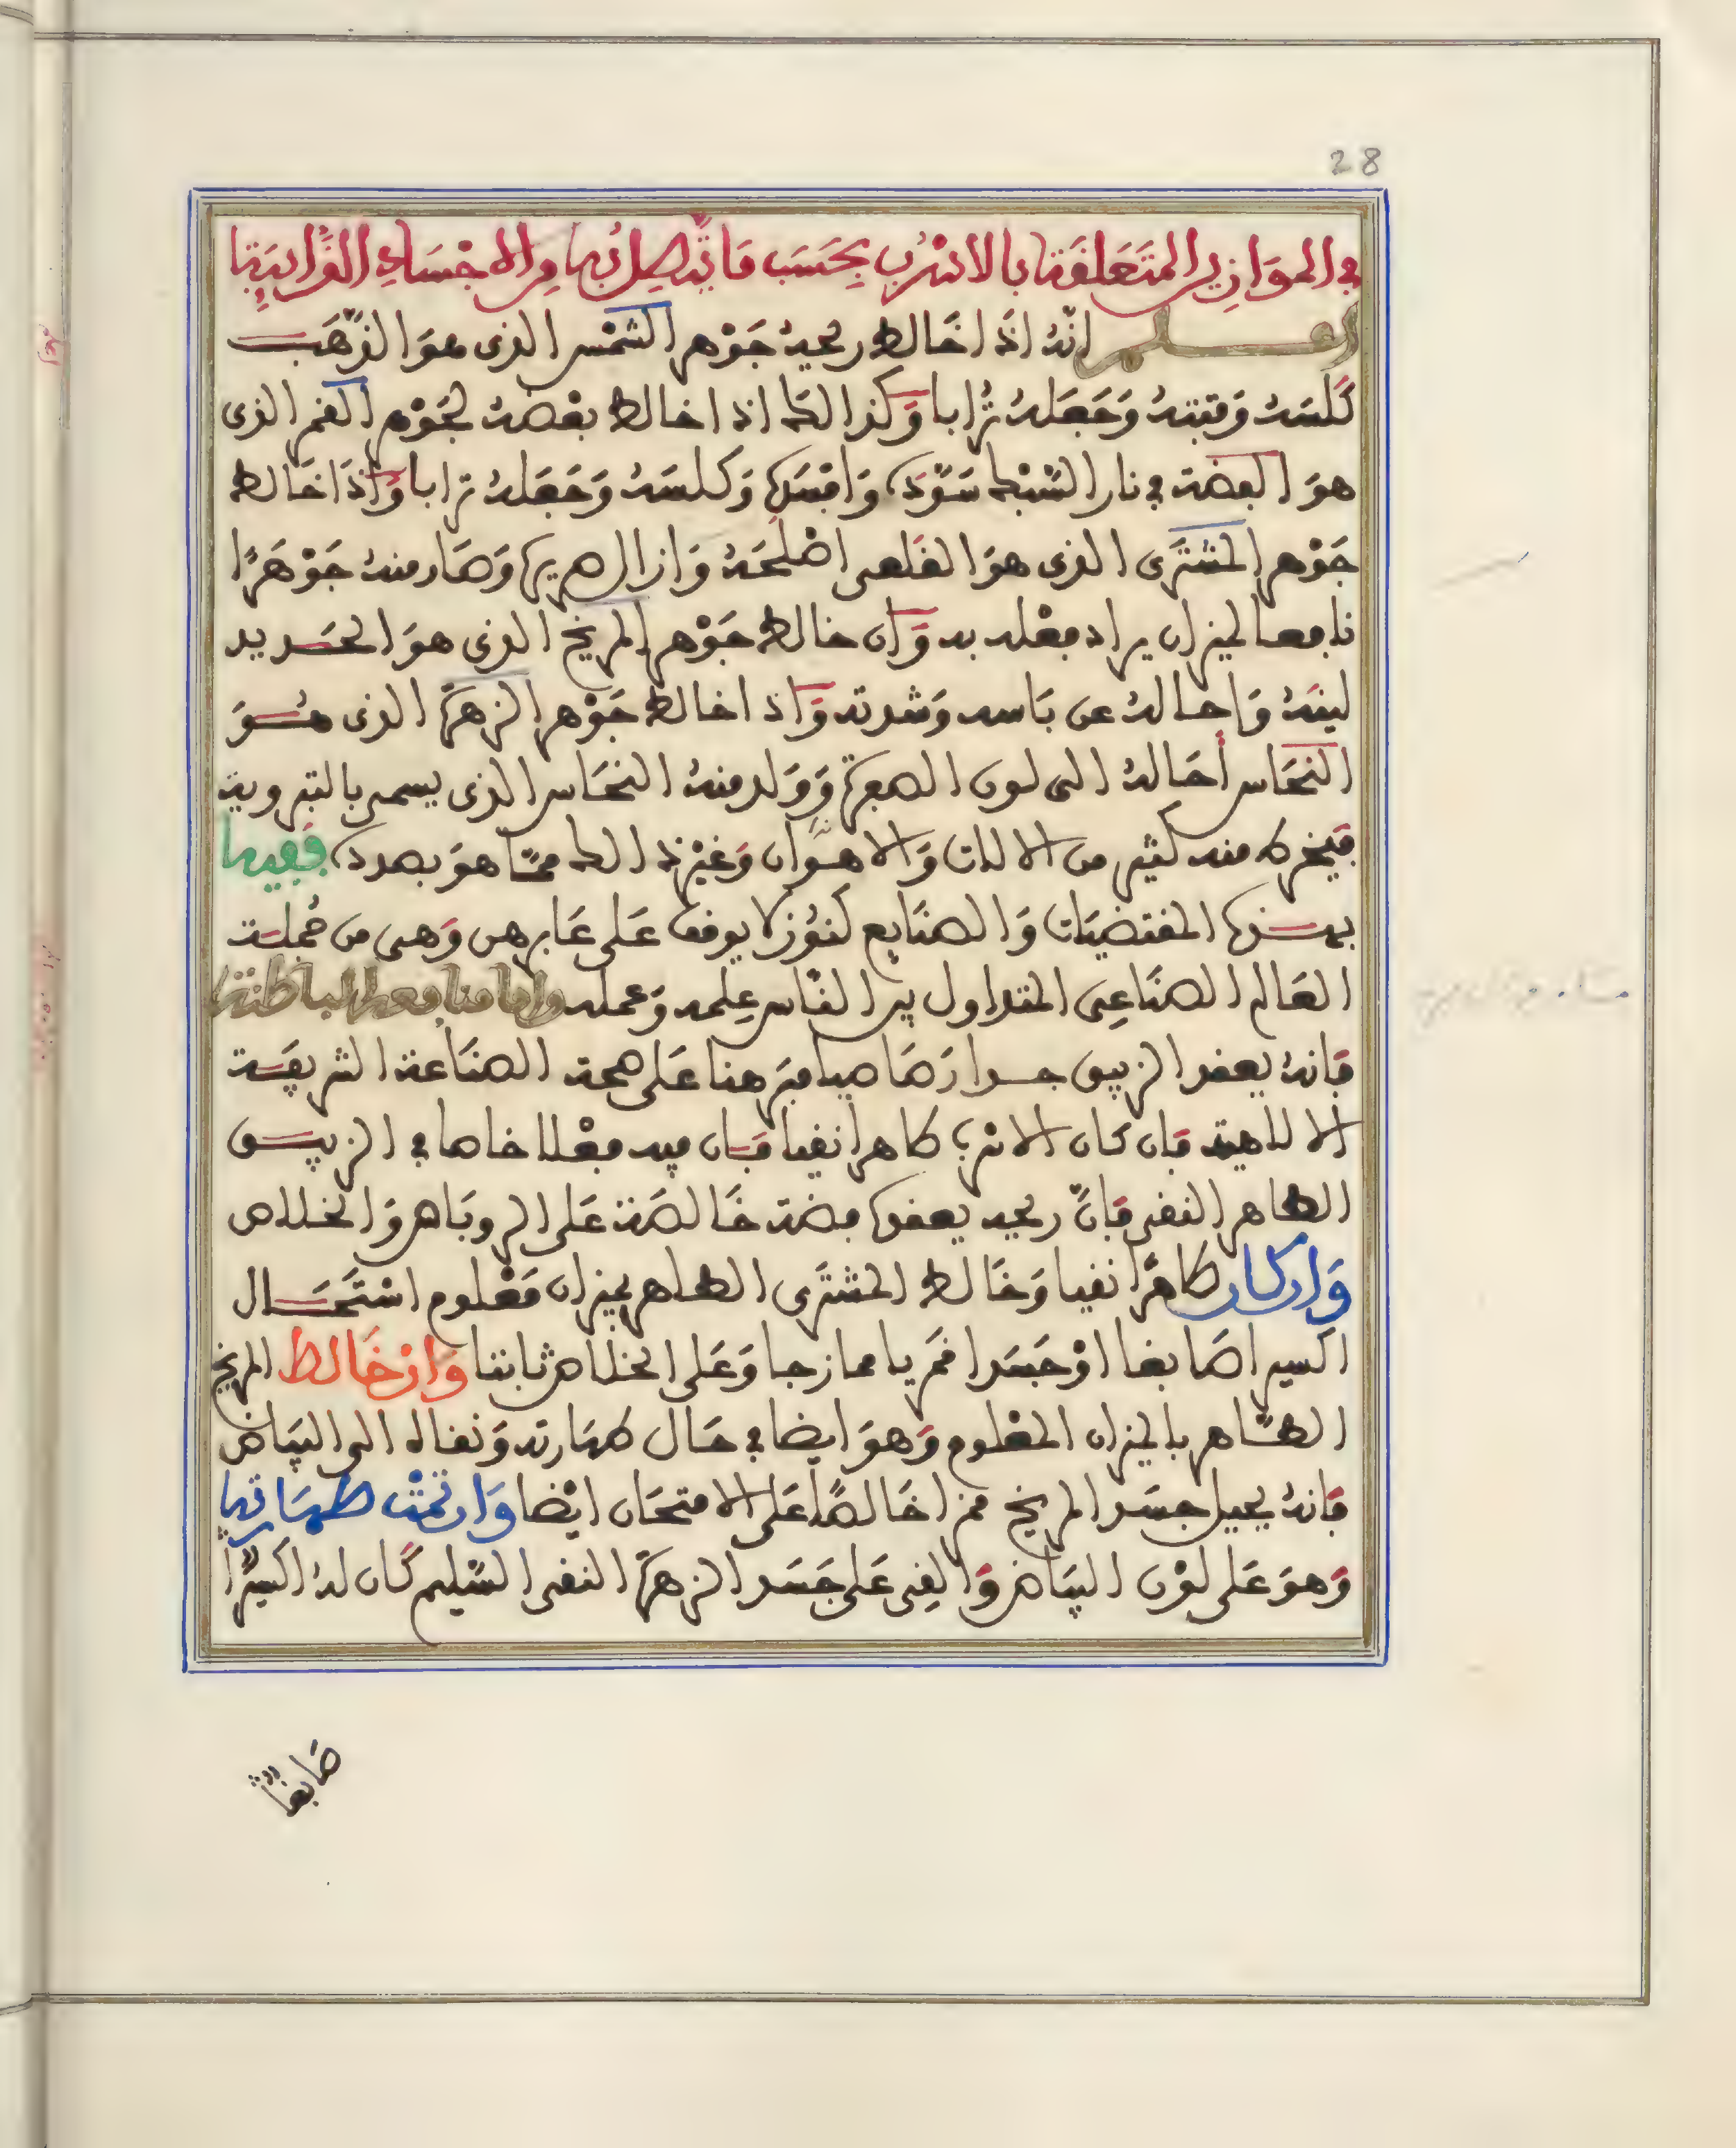 28
في الموازين المتعلقة بالاسرب بحسب ما يتصل بها من الاجساد الذايبة
اعلم انه اذا خالط ريحه جوهر الشمس الذي هو الذهب
كلسه وفتته وجعله ترابا وكذالك اذا خالط بعضه لجوهر القمر الذي
هو الفضة في نار السبك سوده وافسده وكلسه وجعله ترابا واذا خالط
جوهر المشتري الذي هو القلعي اصلحه وازال صريره وصار منه جوهرا
نافعا لميزان يراد فعله به وان خالط جوهر المريخ الذي هو الحديد
لينه واحاله عن باسه وشدته واذا خالط جوهر الزهرة الذي هو
النحاس أحاله الى لون الصفرة وولد منه النحاس الذي يسمى بالتبروية
فيخرط منه كثير من الالات والاهوان وغير ذالك مما هو بصدده ففيها
بهذه المقتضيات والصنايع كنوز لا يوقف على عابرهن وهي من جملة
العالم الصناعي المتداول بين الناس علمه وعمله واما منافعه الباطنة
فانه يعقد الزيبق جسدا رصاصيا مبرهنا على صحة الصناعة الشريفة
الالاهية فان كان الاسرب طاهرا نقيا فان فيه فعلا خاصا في الزيبق
الطاهر النقي فان ريحه يعقده فضة خالصة على الروباص والخلاص
وان كان طاهرا نقيا وخالط المشتري الطاهر بميزان معلوم استحال
اكسيرا صابغا او جسدا قمريا ممازجا وعلى الخلاص ثابتا وان خالط المريخ
الطاهر بالميزان المعلوم وهو ايضا في حال طهارته ونقاله الى البياض
فانه يحيل جسد المريخ قمرا خالصا على الامتحان ايضا وان تمت طهارتها
وهو على لون البياض والقي على جسد الزهرة النقي السليم كان له اكسيرا
صابغا